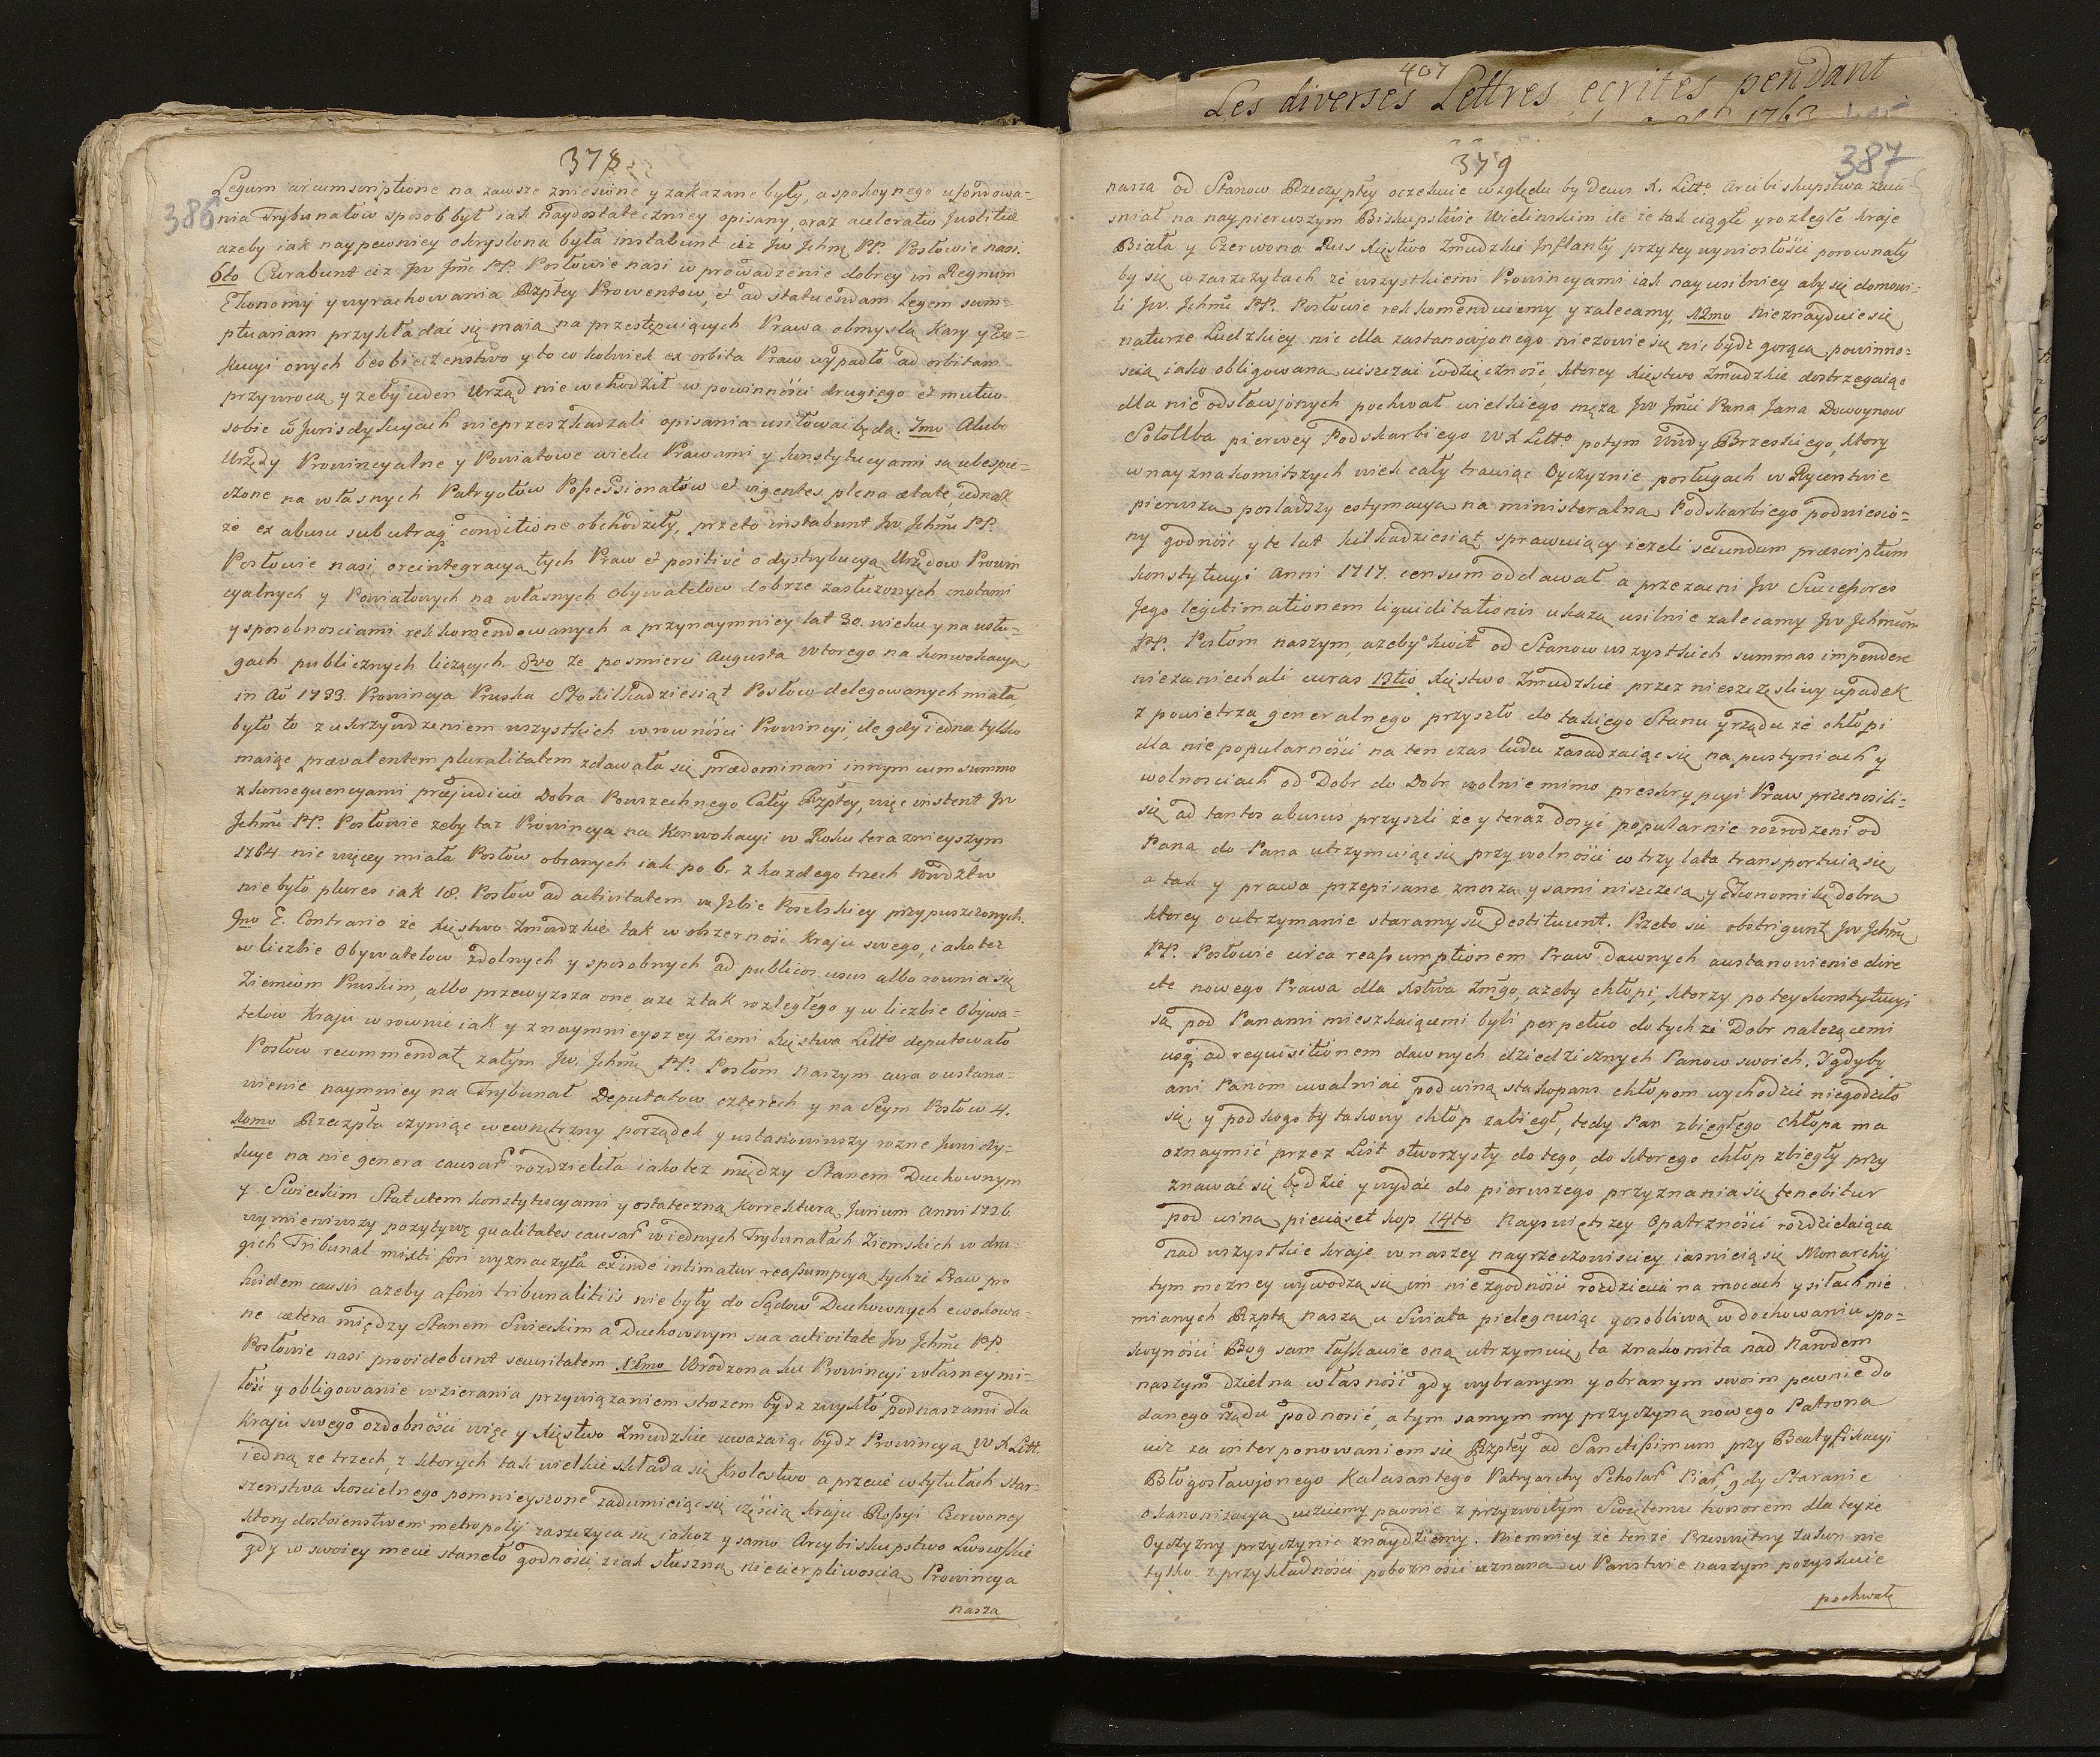 378
386
Legum circumscriptione na zawsze zniesione y zakazane były, a spokoynego ufondowa-
nia Trybunałow sposob był iak naydostateczniey opisany, oraz acceleratio Justitiæ
azeby iak naypewniey okryslona była instabunt ciz Jw Jchmę PP. Posłowie nasi.
6to Curabunt ciz Jw Jmć PP. Posłowie nasi w prowadzenie dobrey in Regnum
Ekonomij y wyrachowania Rzpltey Prowentow, et ad statuendam Legem sum-
ptuariam przykładać się maią na przestępuiących Prawa obmyslą kary y Exe-
kucyi onych besbieczenstwo y to cokolwiek ex orbita Praw wypadło ad orbitam
przywrocą y zeby ieden Urząd nie wchodził w powinności drugiego et mutuo
sobie w Jurisdykcyach nieprzeszkadzali opisania usiłować będą. 7mo Alubo
Urzędy Prowincyalne y Powiatowe wielu Prawami y konstytucyami są ubespie-
czone na własnych Patryotow Possessionatow et vigentes plena ætate, iednak
że ex abusu sub utraq conditione obchodziły, przeto instabunt Jw Jchmć PP.
Posłowie nasi o reintegracyą tych Praw et positive o dystrybucyą Urzędow Prowin
cyalnych y Powiatowych na własnych Obywatelow dobrze zasłuzonych cnotami
y sposobnosciami rekkomendowanych a przynaymniey lat 30. wieku y na usłu-
gach publicznych liczących. 8vo Ze po smierci Augusta Wtorego na konwokacyą
in Ao 1733. Prowincya Pruska Sto kilkadziesiąt Posłow delegowanych miała
było to z ukrzywdzeniem wszystkich w rowności Prowincyi, ile gdy iedna tylko
maiąc prævalentem pluralitatem zdawała się prædominari innym cum summo
z konsequencyami præjudicio Dobra Powszechnego Całey Rzpltey, więc instent Jw
Jchmć PP. Posłowie zeby taz Prowincya na Konwokacyi w Roku teraznieyszym
1764 nie więcey miała Posłow obranych iak po 6. z kazdego trzech Wwdztw
nie było plures iak 18. Posłow ad activitatem w Jzbie Poselskiey przypuszczonych.
9no E. Contrario że Xięstwo Zmudzkie tak w obszerność Kraju swego, iako tez
w liczbie Obywatelow zdolnych y sposobnych ad publicos usus albo rownia się
Ziemiom Pruskim, albo przewyzsza one, aze z tak rozległego y w liczbie Obywa-
telow Kraju w rownie iak y z naymnieyszey Ziemi Xięstwa Litto deputowało
Posłow recommendat zatym Jw. Jchmę PP. Posłom Naszym cura o ustano-
wienie naymniey na Trybunał Deputatow czterech y na Seym Posłow 4.
10mo Rzeczplta czyniąc wewnętrzny porządek y ustanowiwszy rozne Juris dy-
kcye na nie genera causar rozdzieliła iako tez między Stanem Duchownym
y Swieckim Statutem konstytucyami y ostateczną Korrekturą Jurium Anni 1726
wymieniwszy pozytywę qualitates causar w iednych Trybunałach Ziemskich w dru-
gich Tribunal mixti fori wyznaczyła exinde intimatur reassumpcya tychże Praw pro
kuidem causis azeby a foris tribunalitiis nie były do Sądow Duchownych ewokowa-
ne cetera między Stanem Swieckim a Duchownym sua activitate Jw Jchmć PP.
Posłowie nasi providebunt securitatem 11mo Urodzona ku Prowincyi własney mi-
łość y obligowanie wzierania przywiązaniem strozem bydz zwykło pod naszami dla
Kraju swego ozdobności więc y Xięstwo Zmudzkie uwazaiąc bydz Prowincyą W X Litt.
iedną ze trzech, z ktorych tak wielkie składa się Krolestwo a przecie w tytułach star-
szenstwa koscielnego pomnieyszone zadumieiąc się częścią kraju Rossyi Czerwoney
ktory dostoienstwem metropolij zaszczyca się iakoz y samo Arcybiskupstwo Lwowskie
gdy w swoiey mecie staneło godności z iak słuszną niecierpliwoscią Prowincya
nasza
407
Les diverses Lettres ecrites pendant
1763
379
387
nasza od Stanow Rzeczyptey oczekuie względu by decus X. Litto Arcibiskupstwa zaia
śniał na naypierwszym Biskupstwie Wilinskim ile że tak ciągłe y rozległe kraje
Biała y Czerwona Rus Xięstwo Zmudzkie Jnflanty przy tey wyniosłości porownały
by się w zaszczytach ze wszystkiemi Prowincyami iak nayusilniey aby się domowi-
li Jw. Jchmć PP. Posłowie rekkomenduiemy y zalecamy, 12mo Nieznayduie się
naturze Ludzkiey nic dla zastanowionego niezowie się nie bydz gorącą powinno-
scią iako obligowana uiszczać wdzięczność, ktorey Xięstwo Zmudzkie dostrzegaiąc
dla nie odsławjonych pochwał wielkiego męza Jw Jmci Pana Jana Dowoynow
Sołołłba pierwey Podskarbiego W X Litto potym Wwdy Brzeskiego, ktory
w nayznakomitszych wiek cały trawiąc Oyczyznie posługach w Rycerstwie
pierwszą posiadszy estymacyą na ministeralną Podskarbiego podniesio-
ny godność y te lat kilkadziesiąt sprawuiący iezeli secundum præscriptum
konstytucyi Anni 1717. censum oddawał a przezacni Jw Successores
Jego legitimationem liquiditationis ukazą usilnie zalecamy Jw Jchmćm
PP. Posłom naszym, azeby kwit od Stanow wszystkich summas impendere
niezaniechali curas 13tio Xięstwo Zmudzkie przez nieszczęsliwy upadek
z powietrza generalnego przyszło do takiego Stanu y rządu że chłopi
dla niepopularności na ten czas ludu zasadzaiąc się na pustyniach y
wolnosciach od Dobr do Dobr wolnie mimo preskrypcyi Praw przenosili-
się ad tantos abusus przyszli że y teraz dosyć popularnie rozrodzeni od
Pana do Pana utrzymuiąc się przy wolności co trzy lata transportuią się
a tak y prawa przepisane znoszą y sami niszczeią y Ekonomikę dobra
ktorey o utrzymanie staramy się destituunt. Przeto się obstrigunt Jw Jchmć
PP. Posłowie circa reassumptionem Praw dawnych a ustanowienie dire
cte nowego Prawa dla Xstwa Zmgo, azeby chłopi, ktorzy po tey konstytucyi
są pod Panami mieszkaiącemi byli perpetuo do tychże Dobr nalezącemi
usq ad requisitionem dawnych dziedzicznych Panow swoich. Y gdyby
ani Panom uwalniać pod winą sta kopans chłopom wychodzić niegodziło
się, y pod kogoby takowy chłop zabiegł, tedy Pan zbiegłego chłopa ma
oznaymić przez List otworzysty do tego, do ktorego chłop zbiegły przy
znawać się będzie y wydać do pierwszego przyznania się tenebitur
pod winą pięciuset kop 14to Nayswiętszey Opatrzności rozdzielaiąca
nad wszystkie kraje w naszey nayrzeczowisciey iasnieią się Monarchij
tym mozney wywodzą się im niezgodności rozdzieliá na mocach y siłach nie
mianych Rzptą naszą u Swiata pielegnuiąc y osobliwą w dochowaniu spo-
koyności Bog sam łaskawie oną utrzymuie, ta znakomita nad Narodem
naszym dzielna własność gdy wybranym y obranym swoim pewnie do
danego rządu podnosić, a tym samym my przyczyną nowego Patrona
iuz za interponowaniem się Rzptey ad Sanctissimum przy Beatyfikacyi
Błogosławjonego Kalasantego Patryarchy Scholar Piar, gdy Staranie
o kanonizacyą uczniemy pewnie z przyzwoitym Swiętemu honorem dla teyże
Oyczyzny przyczynie znaydziemy. Niemniey że tenże Przeswietny Zakon nie
tylko z przykładności pobozności uznana w Panstwie naszym pozyskuie
pochwałę